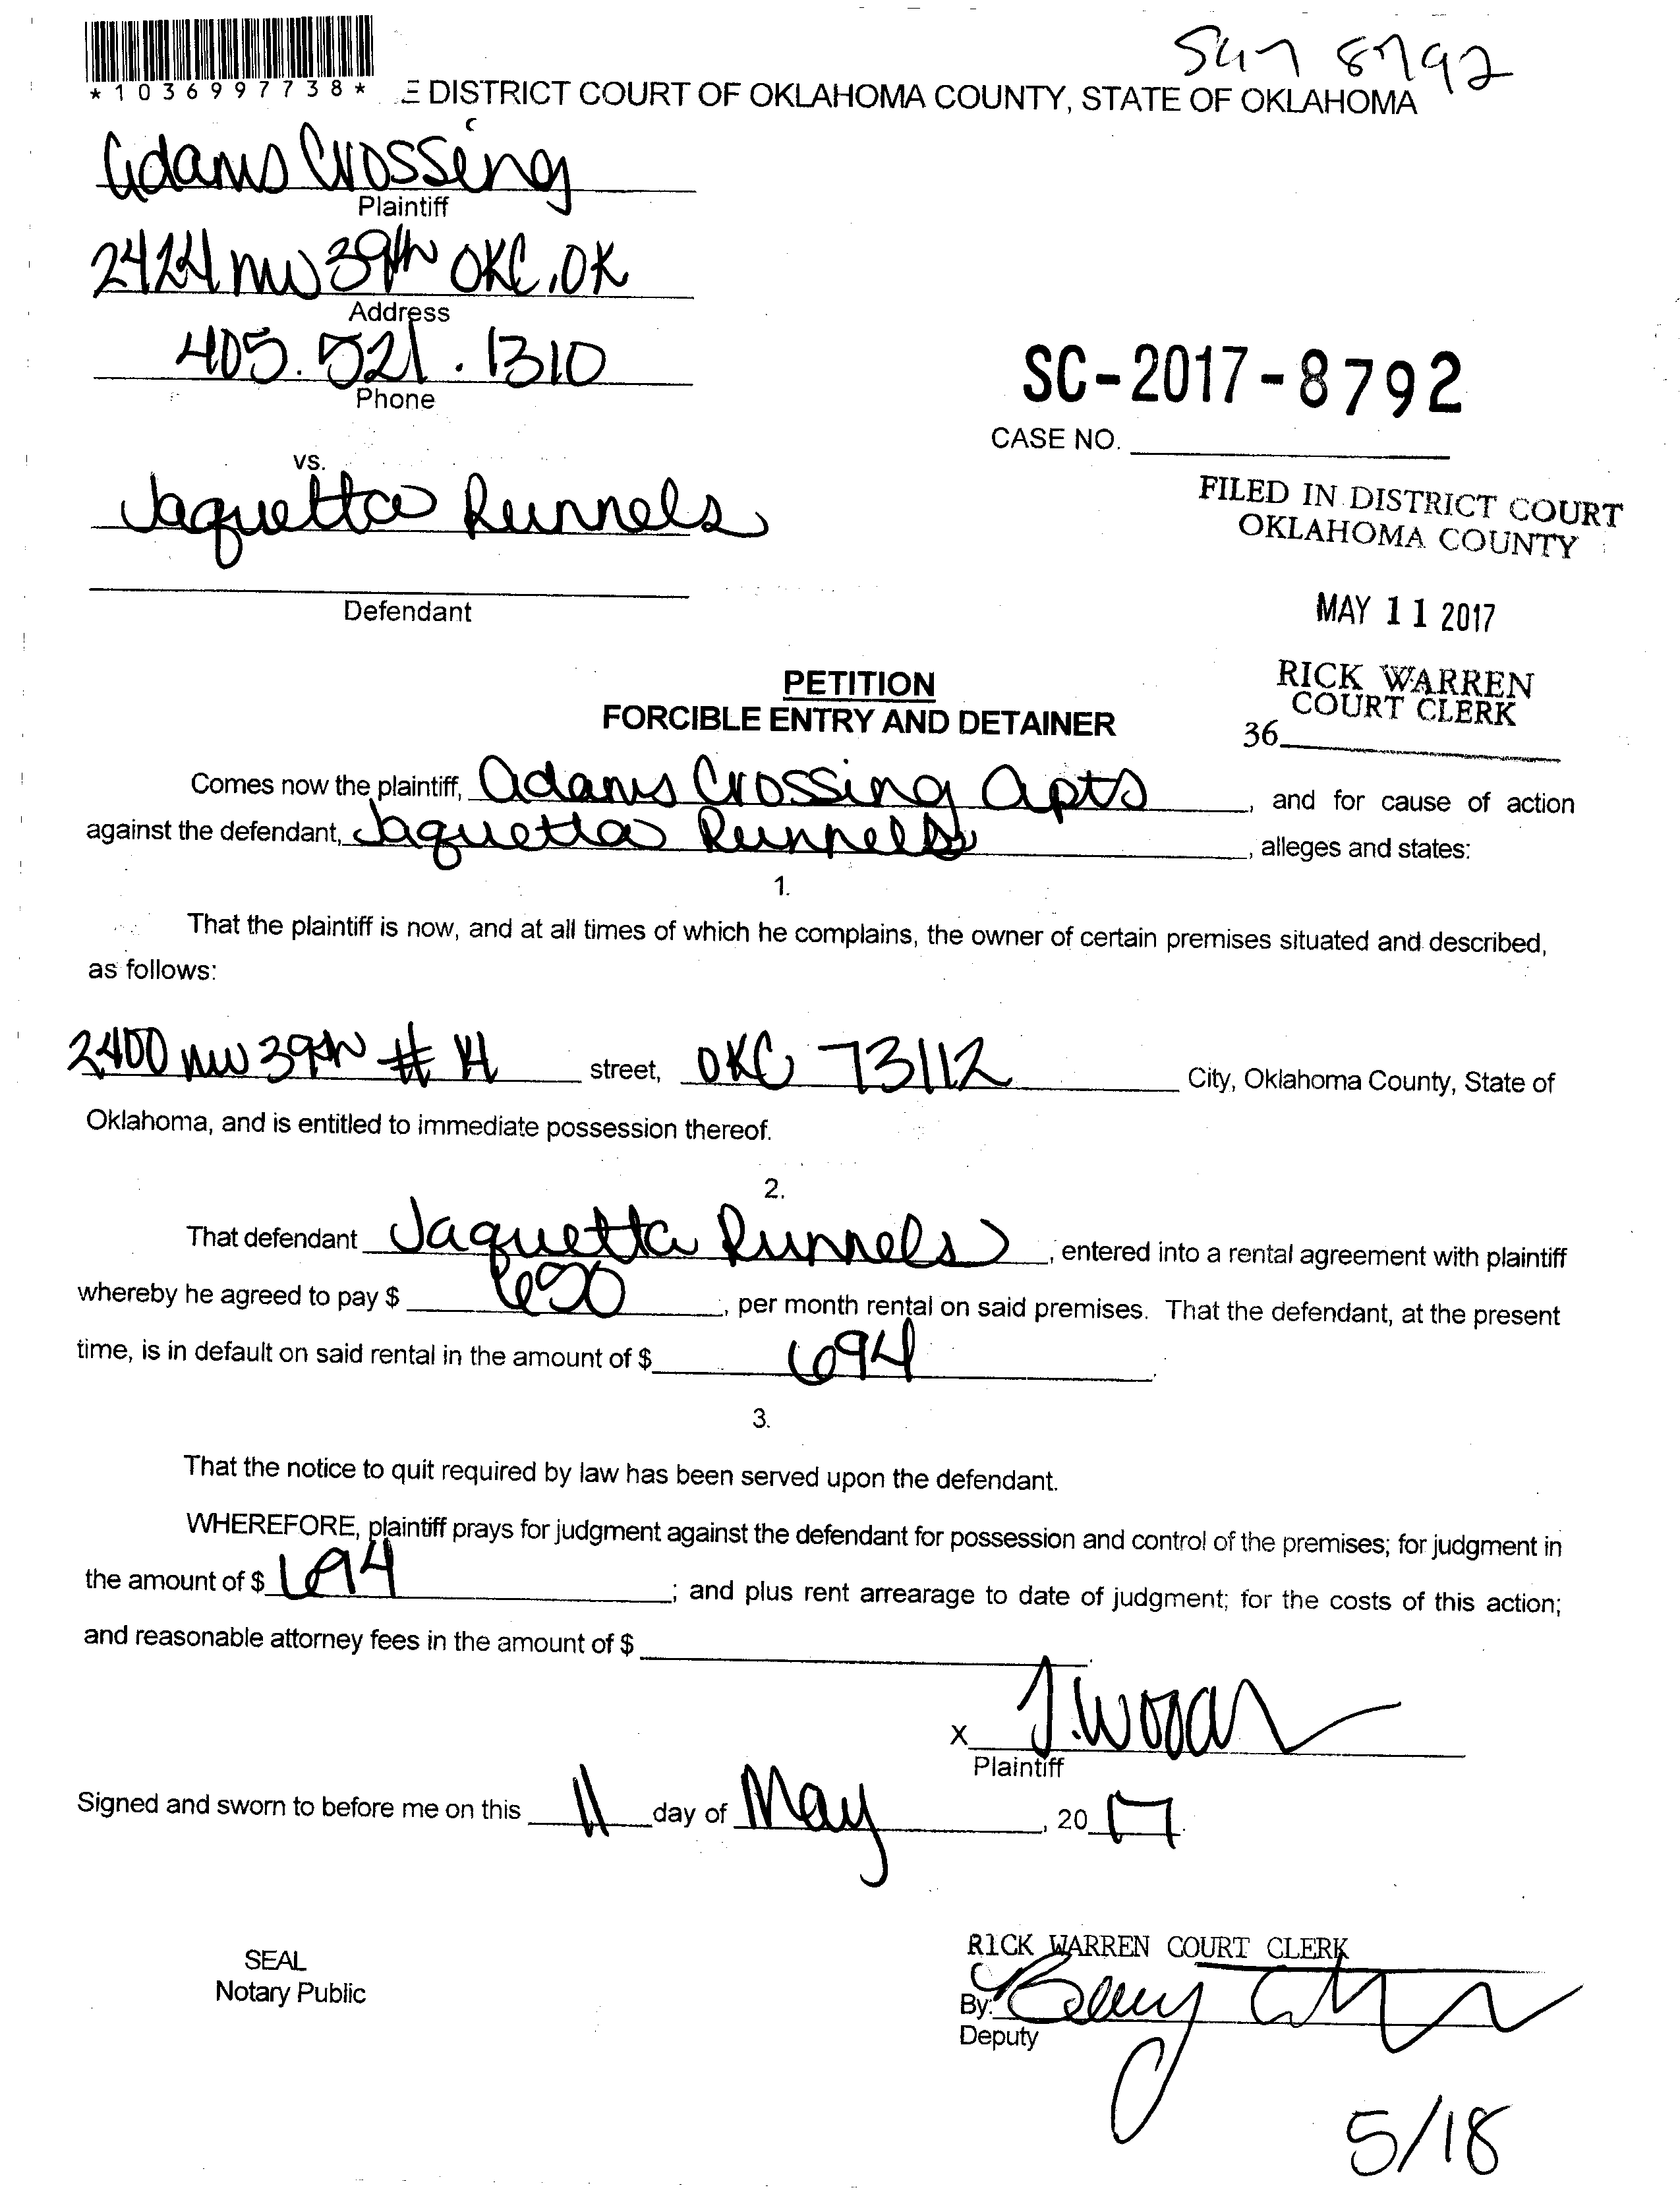 S17 8792
*1036997738*
E DISTRICT COURT OF OKLAHOMA COUNTY, STATE OF OKLAHOMA
Adams Crossing
Plaintiff
2424 NW 39th OKC, OK
Address
405.521.1310
Phone
SC-2017-8792
CASE NO.
vs.
Jaquetta Runnels
Defendant
FILED IN DISTRICT COURT
OKLAHOMA COUNTY
MAY 11 2017
RICK WARREN
COURT CLERK
36
PETITION
FORCIBLE ENTRY AND DETAINER
Comes now the plaintiff, Adams Crossing Apts, and for cause of action
against the defendant, Jaquetta Runnels, alleges and states:
1.
That the plaintiff is now, and at all times of which he complains, the owner of certain premises situated and described,
as follows:
2400 NW 39th # 14 street, OKC 73112 City, Oklahoma County, State of
Oklahoma, and is entitled to immediate possession thereof.
2.
That defendant Jaquetta Runnels, entered into a rental agreement with plaintiff
whereby he agreed to pay $ 650, per month rental on said premises. That the defendant, at the present
time, is in default on said rental in the amount of $ 694.
3.
That the notice to quit required by law has been served upon the defendant.
WHEREFORE, plaintiff prays for judgment against the defendant for possession and control of the premises; for judgment in
the amount of $ 694; and plus rent arrearage to date of judgment; for the costs of this action;
and reasonable attorney fees in the amount of $ .
X J. Wood
Plaintiff
Signed and sworn to before me on this 11 day of May, 2017.
SEAL
Notary Public
RICK WARREN COURT CLERK
By:
Deputy
5/18